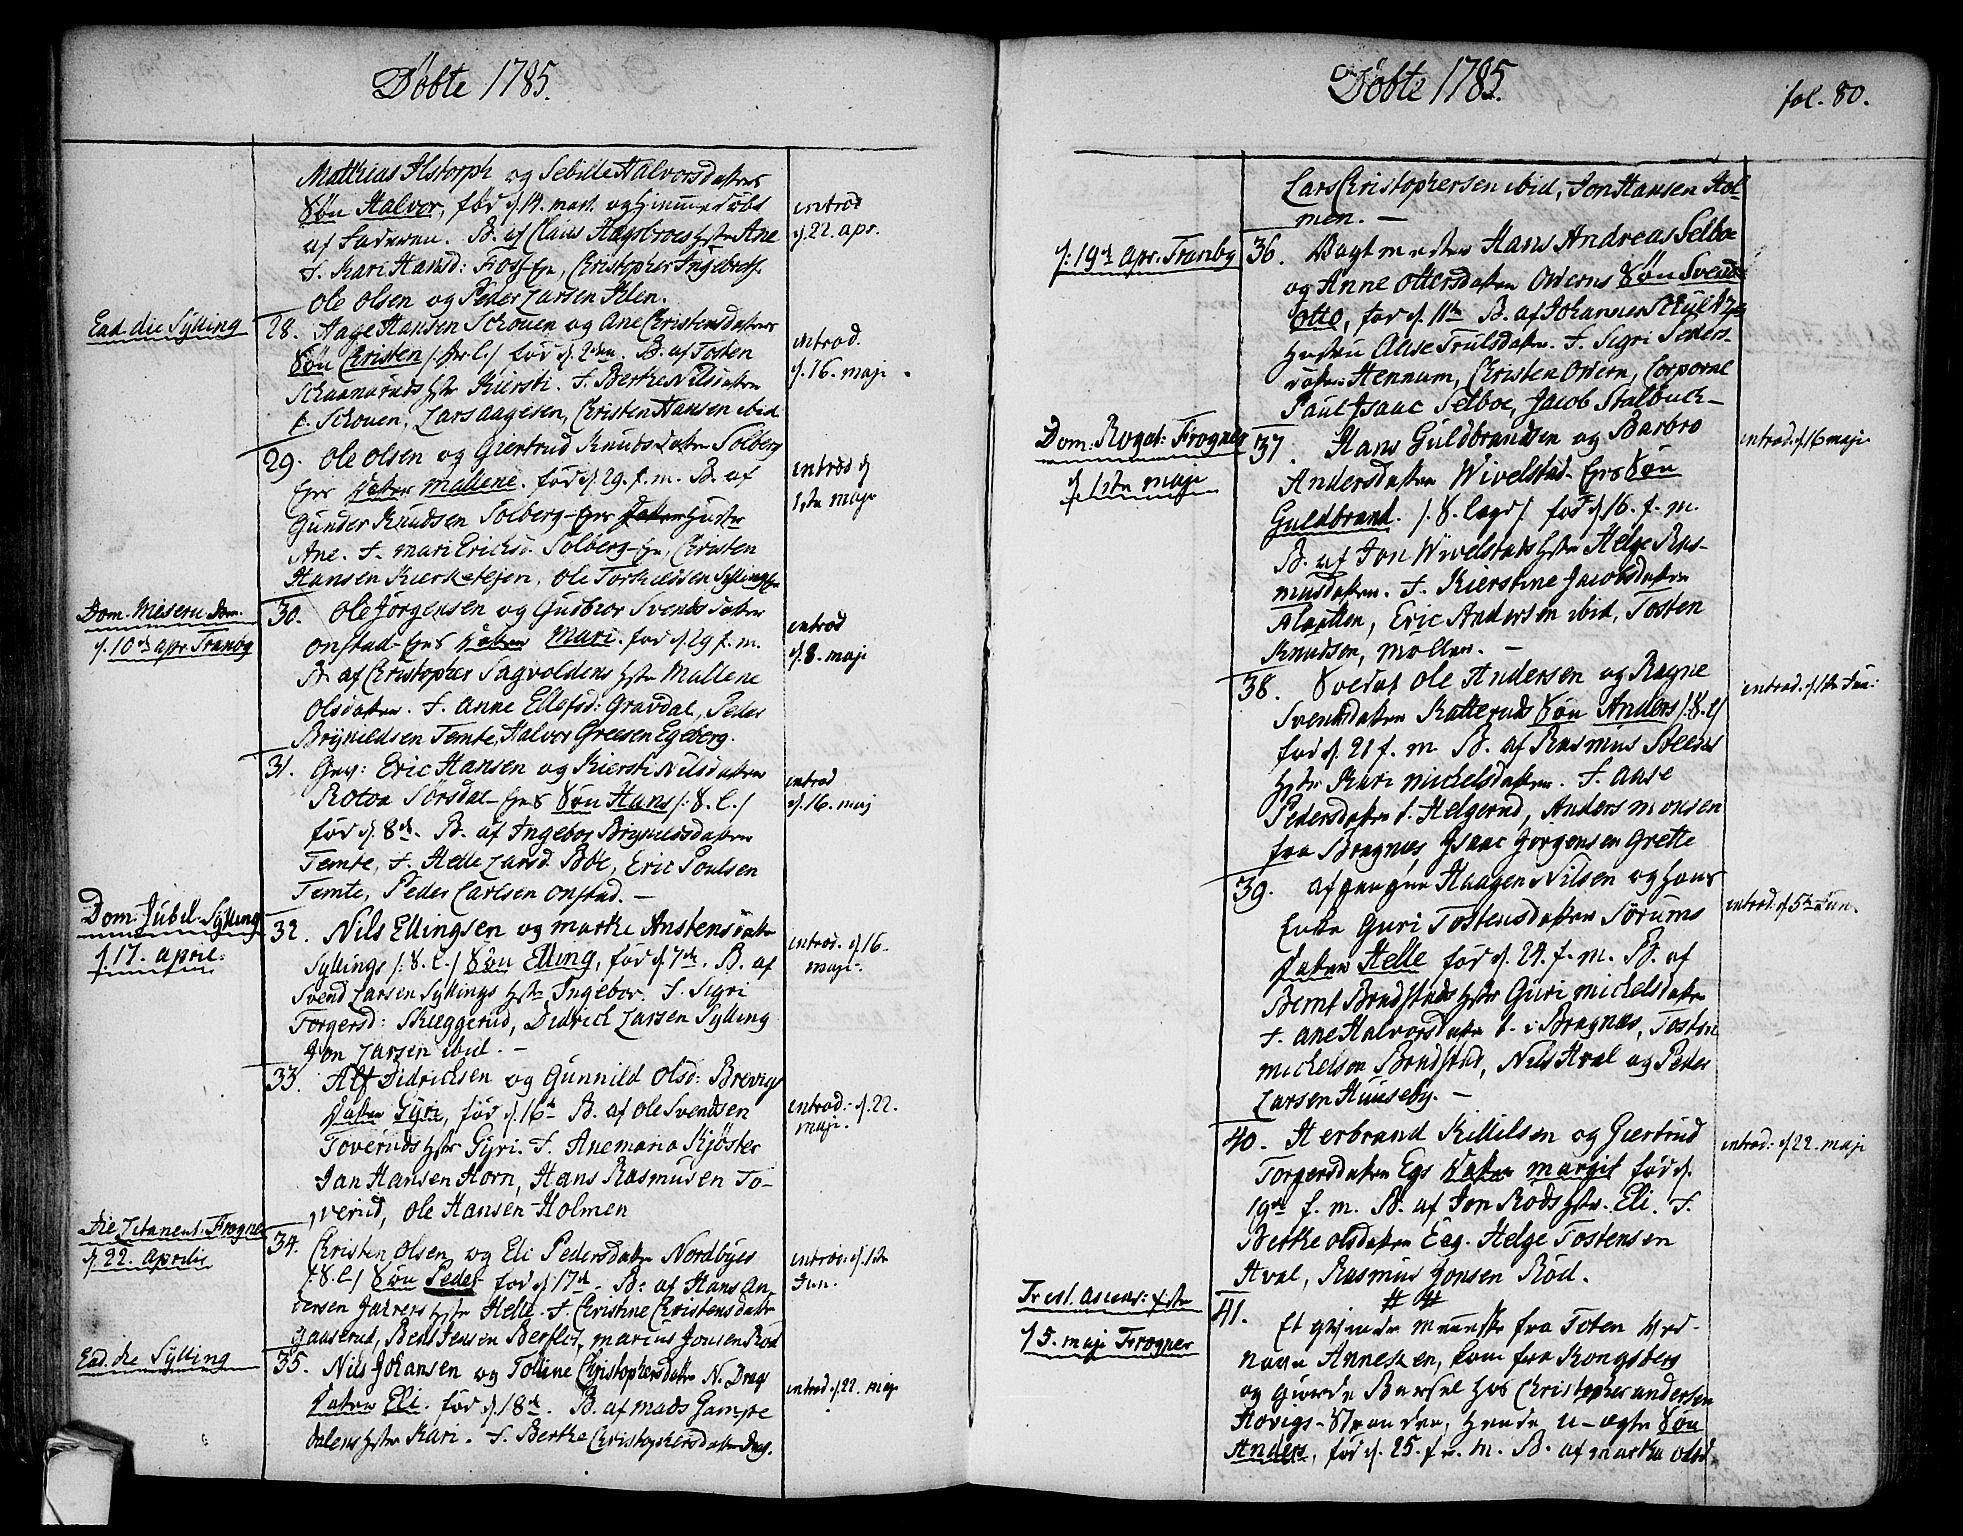 Döbte 1785.
Mathias Ilstorph og Sebille Halvorsdatters
Søn Halvor, før d. 14. mart. og hjemmedöbt
af Faderen. B. af Claus Hagsbroes hstr Ane
F. Kari Hansd: Christopher Ingebretsn.
Ole Olsen og Peder Larsen Iilen.
introd
d. 22. apr.
Ead. die Sylling
28. Aage Hansen Schouen og Ane Christensdatters
Søn Christen før d. 2den. B. af Tosten
hstr Kiersti. F. Berthe Nilsdatter
Schouen, Lars aagesen, Christen Hansen ibid
introd.
d. 16. maji
29. Ole Olsen og Giertrud Knudsdatter Solberg
Egns Datter Mallene. før d. 29. f. m. B. af
Gunder Knudsen Solberg-Egns Hustr
Ane. F. Mari Ericksd Solberg-, Christen
Hansen Kierketejen, Ole Torkildsen Sylling
introd d
1ste maji
Dom. Misericordiæ Dom.
d. 10de apr. Tranby
30. Ole Jörgensen og Gudbror Svendsdatter
Onstad-Egns Datter Mari. før d. 29 f. m.
B. af Christopher Sagvoldens hstr Mallene
Olsdatter. F. Anne Ellefsd: Gravdal, Peder
Brynildsen Temte, Halvor Greesen Egeberg.
introd
d. 8. maji
31. Gev: Eric Hansen og Kiersti Nilsdatter
Rotoa Sörsdal-Egns Søn Hans /: 8. l. /
før d. 8de. B. af Ingebor Brynildsdatter
Temte, F. Helle Larsd Böe, Eric Poulsen
Temte, Peder Carlsen Onstad. —
introd
d. 16. maj
Dom: Jubil. Sylling
d. 17. april.
32. Nils Ellingsen og Marthe Anstensdatr
Syllings /: 8. l. / Søn Elling, før d. 7de. B. af
Svend Larsen Syllings hstr Ingebor. F. Sigri
Torgersd: Skeggerud, Didrich Larsen Sylling
Jon Larsen ibid. —
introd. d. 16.
maji.
33. Alf Didrichsen og Gunnild Olsd: Brevigs
Datter Gyri, før d. 16de B. af Ole Svendsen
Toveruds hstr Gyri. F. Anemaria Kjöster
Jan Hansen Horn, Hans Rasmusen To-
verud, Ole Hansen Holmen
introd: d. 22.
maji.
Die Letaneut: Frogner
d. 22. Aprilis
34. Christen Olsen og Eli Pedersdatter Nordbyes
/: 8. l / Søn Peder før d. 17de. B: af Hans An-
dersen hstr Helle. F. Christine Christensdatr
Gauserud, Bent Jensen Berflot, Marius Jonsen Rod
introd: d. 1ste
Jun.
Ead. die Sylling
35. Nils Johansen og Tolline Christophersdatr N. Drags
Datter Eli. før d. 18de. B. af Mads Gampe
dalens hstr Kari. F. Berthe Christophersdatter Drag.
introd. d. 22. maji
Döbte 1785.
fol. 80.
Lars Christophersen ibid, Jon Hansen Hol-
men. —
d: 19de apr. Tranby
36. Vagtmester Hans Andreas Selboe
og Anne Ottersdatter Overns Søn Svend
Otto, før d. 11te B. af Johannes
Hustru Aase Trulsdatter. F. Sigri Peders-
datter Hennum, Christen Overn, Corporal
Paul Isaac Selboe, Jacob Stalbuck—
Dom. Rogat: Frogner
d. 1ste maji
37. Hans Guldbrandsen og Barbro
Andersdatter Wivelstad-Egns Søn
Guldbrand. /: 8. lags / før d. 16. f. m.
B. af Jon Wivelstads hstr Helge Ras-
musdatter. F. Kierstine Jacobsdatter
Eric Andersen ibid, Tosten
Knudson, Mollen. —
introd. d. 16 maji
38. Ole Andersen og Ragne
Svendsdatter Katteruds Søn Anders /: 8. l /
før d. 21 f. m. B. af Rasmus Steens
hstr Kari Michelsdatter. F. Aase
Pedersdatter t. Helgerud, Anders Monsen
fra Bragnæs, Isaac Jorgensen Grette
introd. d. 1ste Jun:
39. Afgangne Haagen Nilsen og Hans
Enke Guri Tostensdatter Sørums
Datter Helle før d. 24. f. m. B. af
Bernt Brudstads hstr Guri Michelsdatter
F. Ane Halvorsdatter t. i Bragnæs, Tosten
Michelsen Brudstad, Nils Hval og Peder
Larsen Huuseby. —
introd. d. 5te Jun.
40. Herbrand Killilsen og Giertrud
Torgersdatter Egs Datter Margit før d.
19de f. m. B. af Jon Rods hstr. Eli. F.
Berthe Olsdatter Eeg. Helge Tostensen
Hval, Rasmus Jonsen Röd.
introd: d. 22. maji
Fest. ascens: Xsti
d. 5. maji Frogner
41. Et qvinde Menneske fra Toten ved-
navn Annesken, som fra Kongsberg
og giorde Barsel hos Christopher Andersen
Hovigs-Stranden, hendes u-ægte Søn
Anders, før d. 25. f. m. B. af Marthe Olsd.